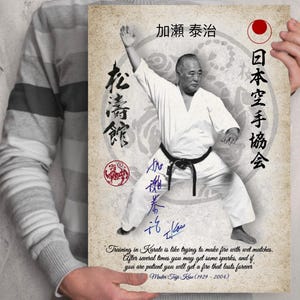 加瀬 泰治
日本空手協会
松濤館
加瀬泰治
T. Kase
"Training in Karate is like trying to make fire with wet matches.
After several times you may get some sparks, and if
you are patient you will get a fire that lasts forever"
Master Taiji Kase (1929 - 2004)